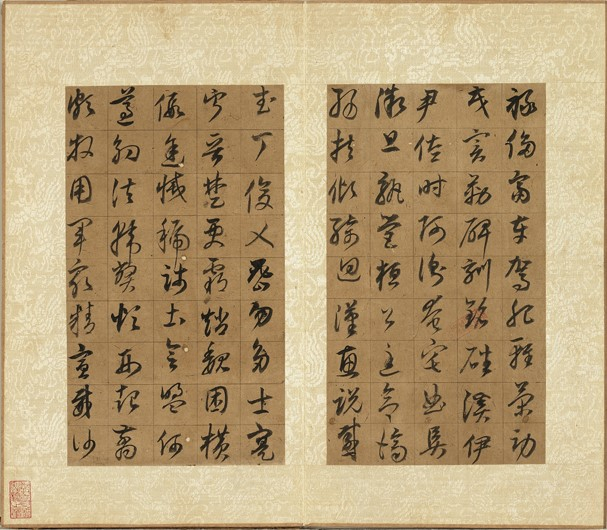 祿侈富車駕肥輕策功
茂實勒碑刻銘磻溪伊
尹佐時阿衡奄宅曲阜
微旦孰營桓公匡合濟
弱扶傾綺迴漢惠說感
武丁俊乂密勿多士寔
寧晉楚更霸趙魏困橫
假途滅虢踐土會盟何
遵約法韓弊煩刑起翦
頗牧用軍最精宣威沙